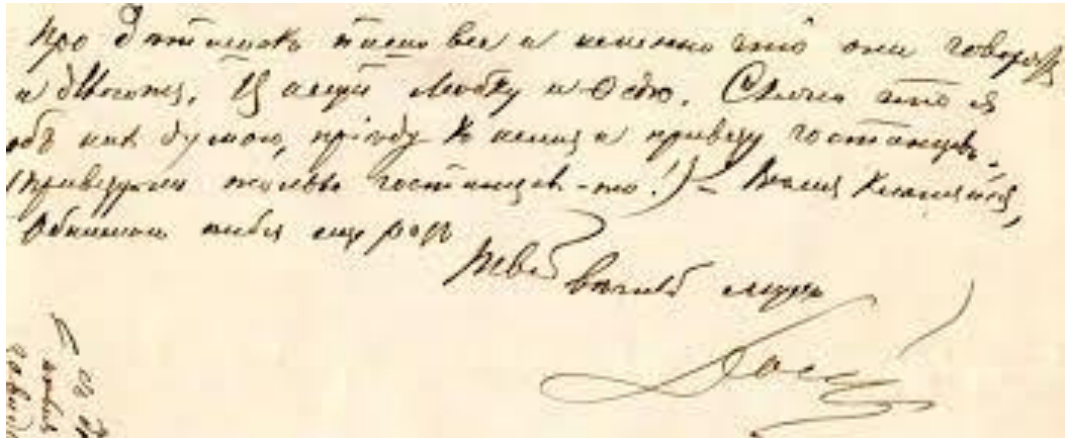 Про дѣтишекъ пиши все и именно что они говорятъ
и дѣлаютъ. Цалуй Любку и Ѳедю. Скажи что я
объ нихъ думаю, пріѣду къ нимъ и привезу гостинцевъ.
(Привезу ли только гостинцевъ-то!) – Всѣмъ кланяйся,
Обнимаю тебя еще разъ
Твой вѣчный мужъ
Дост